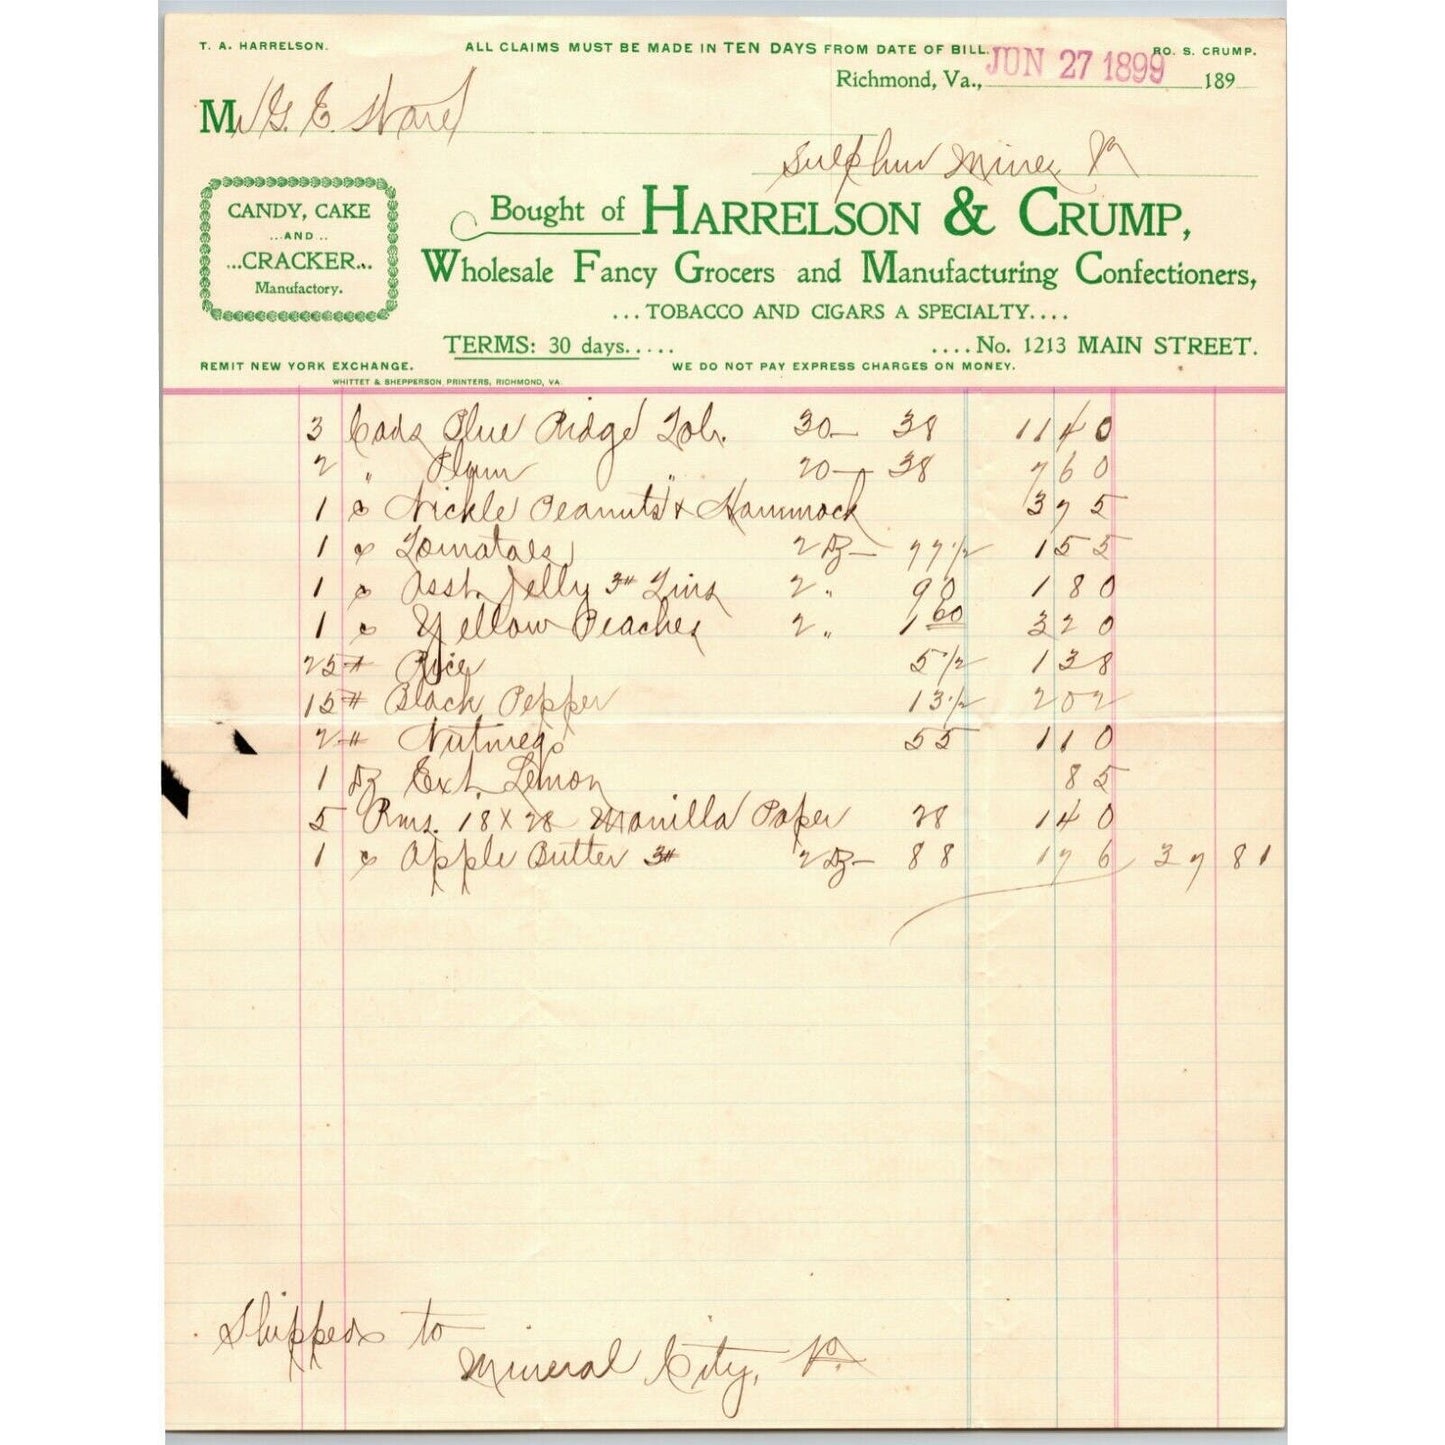 T. A. HARRELSON. ALL CLAIMS MUST BE MADE IN TEN DAYS FROM DATE OF BILL. RO. S. CRUMP.
Richmond, Va., JUN 27 1899 189
Mr G. E. Ward
Sulphur Mines Va
CANDY, CAKE
...AND..
...CRACKER...
Manufactory.
Bought of HARRELSON & CRUMP,
Wholesale Fancy Grocers and Manufacturing Confectioners,
...TOBACCO AND CIGARS A SPECIALTY....
TERMS: 30 days..... ....No. 1213 MAIN STREET.
REMIT NEW YORK EXCHANGE. WE DO NOT PAY EXPRESS CHARGES ON MONEY.
WHITTET & SHEPPERSON, PRINTERS, RICHMOND, VA.
3 Cads Blue Ridge Tob. 30— 38 11 40
2 " Plum " 20— 38 7 60
1 c Nickle Peanuts & Hammock 3 75
1 c Tomatoes 2 Dz— 77 1/2 1 55
1 c Asst. Jelly 3# Tins 2 " 90 1 80
1 c Yellow Peaches 2 " 1 60 3 20
25 # Rice 5 1/2 1 38
15 # Black Pepper 13 1/2 2 02
2 # Nutmegs 55 1 10
1 Dz Ext. Lemon 85
5 Rms. 18 x 28 Manilla Paper 28 1 40
1 c Apple Butter 3# 2 Dz— 88 1 76 37 81
Shipped to
Mineral City, Va.